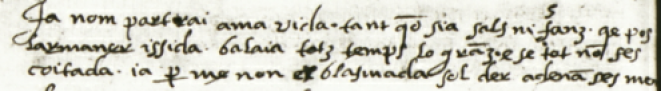 Ja nom partrai ama vida. tant qō sia sals ni sanz. qe pos
larmanor issida. balaia totz temps lo granz. e se tot nō ses
coitada. ia ꝑ me non er blasmada sol der adenā ses me